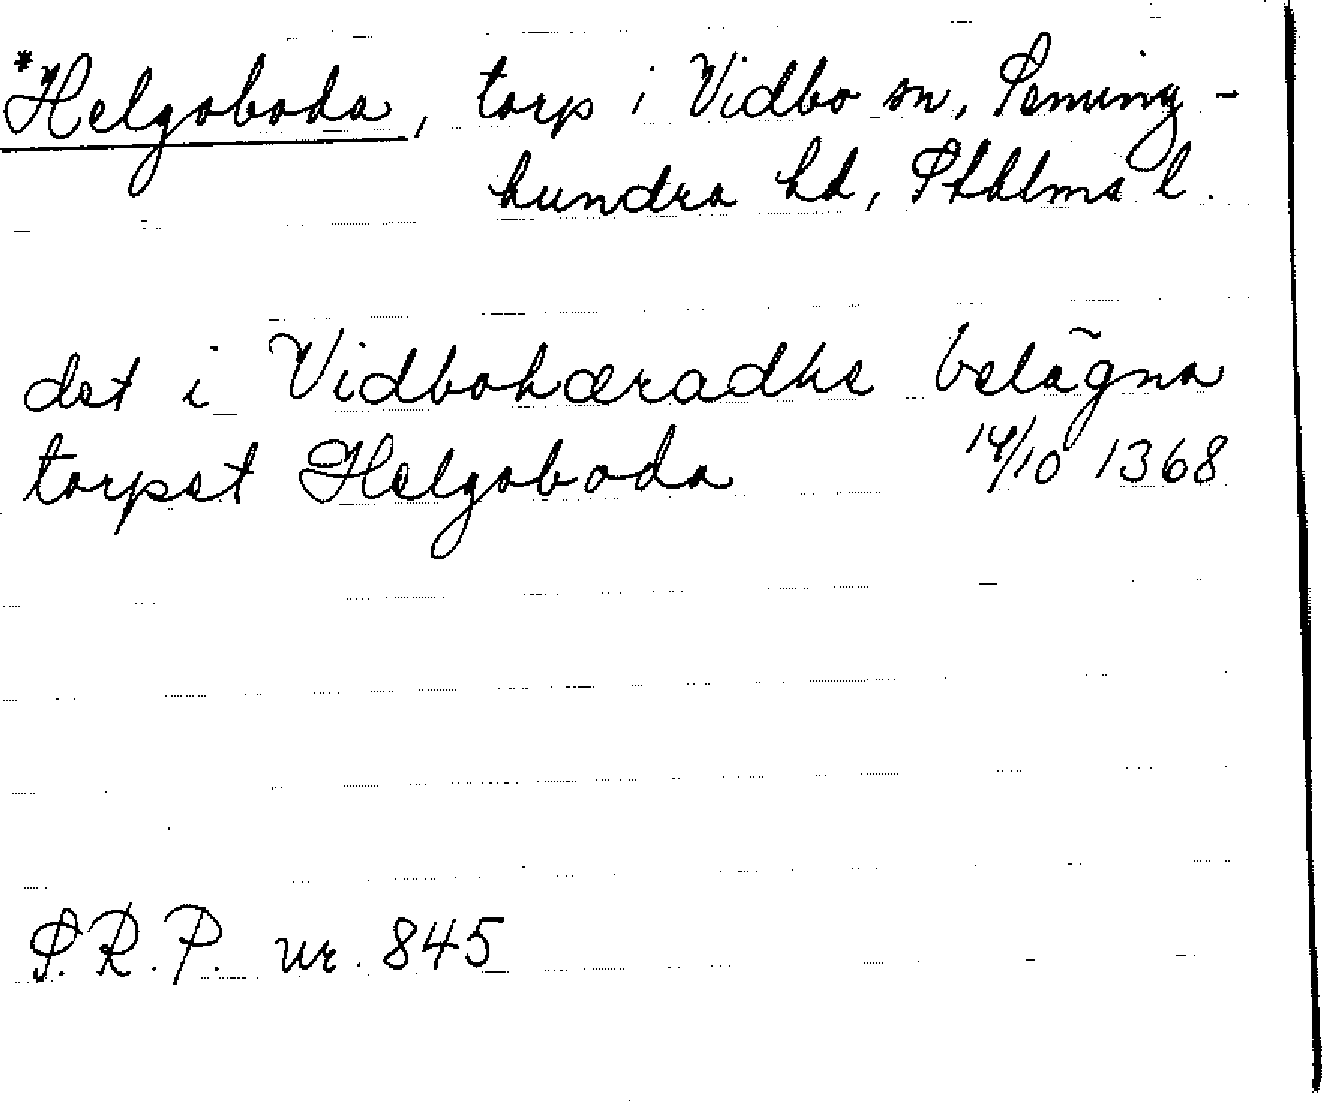 *Helgoboda, torp i Vidbo sn, Seming-
hundra hd, Sthlms l.
det i Vidbohæradhe belägna
torpet Helgoboda 14/10 1368
S.R.P. nr. 845